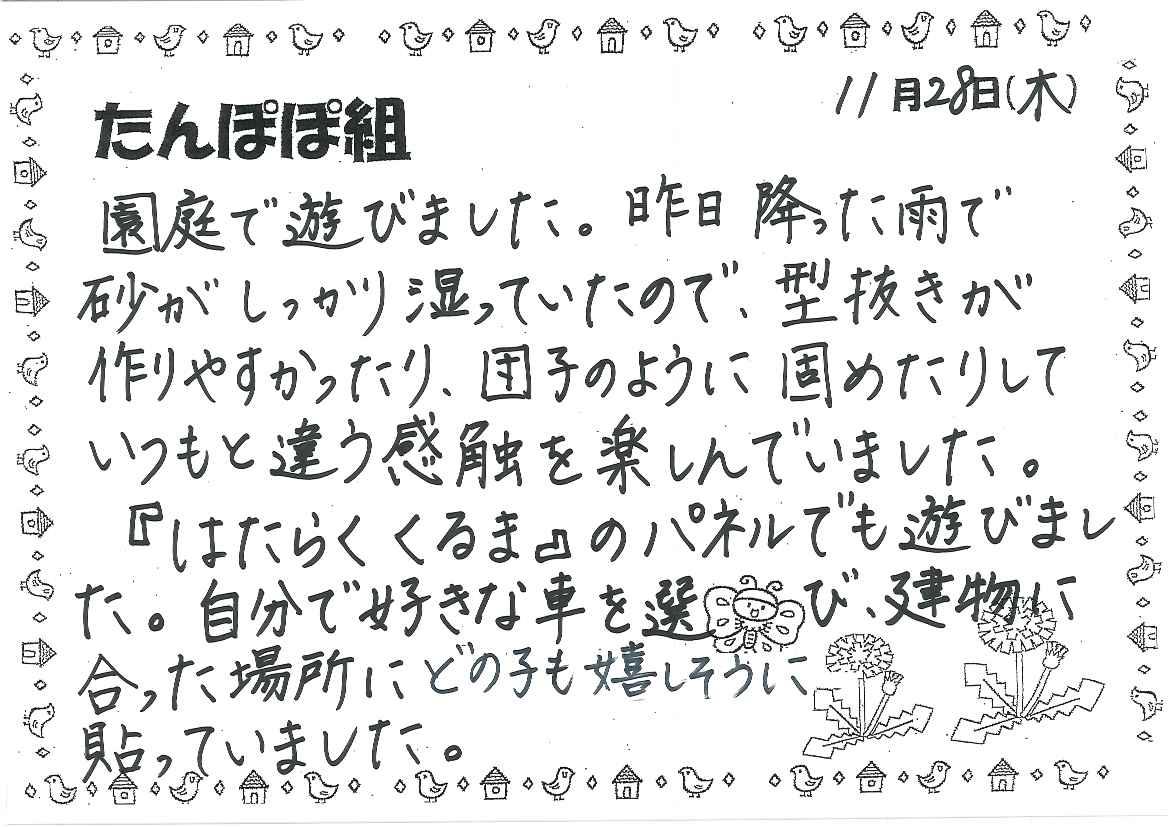 11月28日(木)
たんぽぽ組
園庭で遊びました。昨日降った雨で
砂がしっかり湿っていたので、型抜きが
作りやすかったり、団子のように固めたりして
いつもと違う感触を楽しんでいました。
『はたらくくるま』のパネルでも遊びまし
た。自分で好きな車を選び、建物に
合った場所にどの子も嬉しそうに
貼っていました。